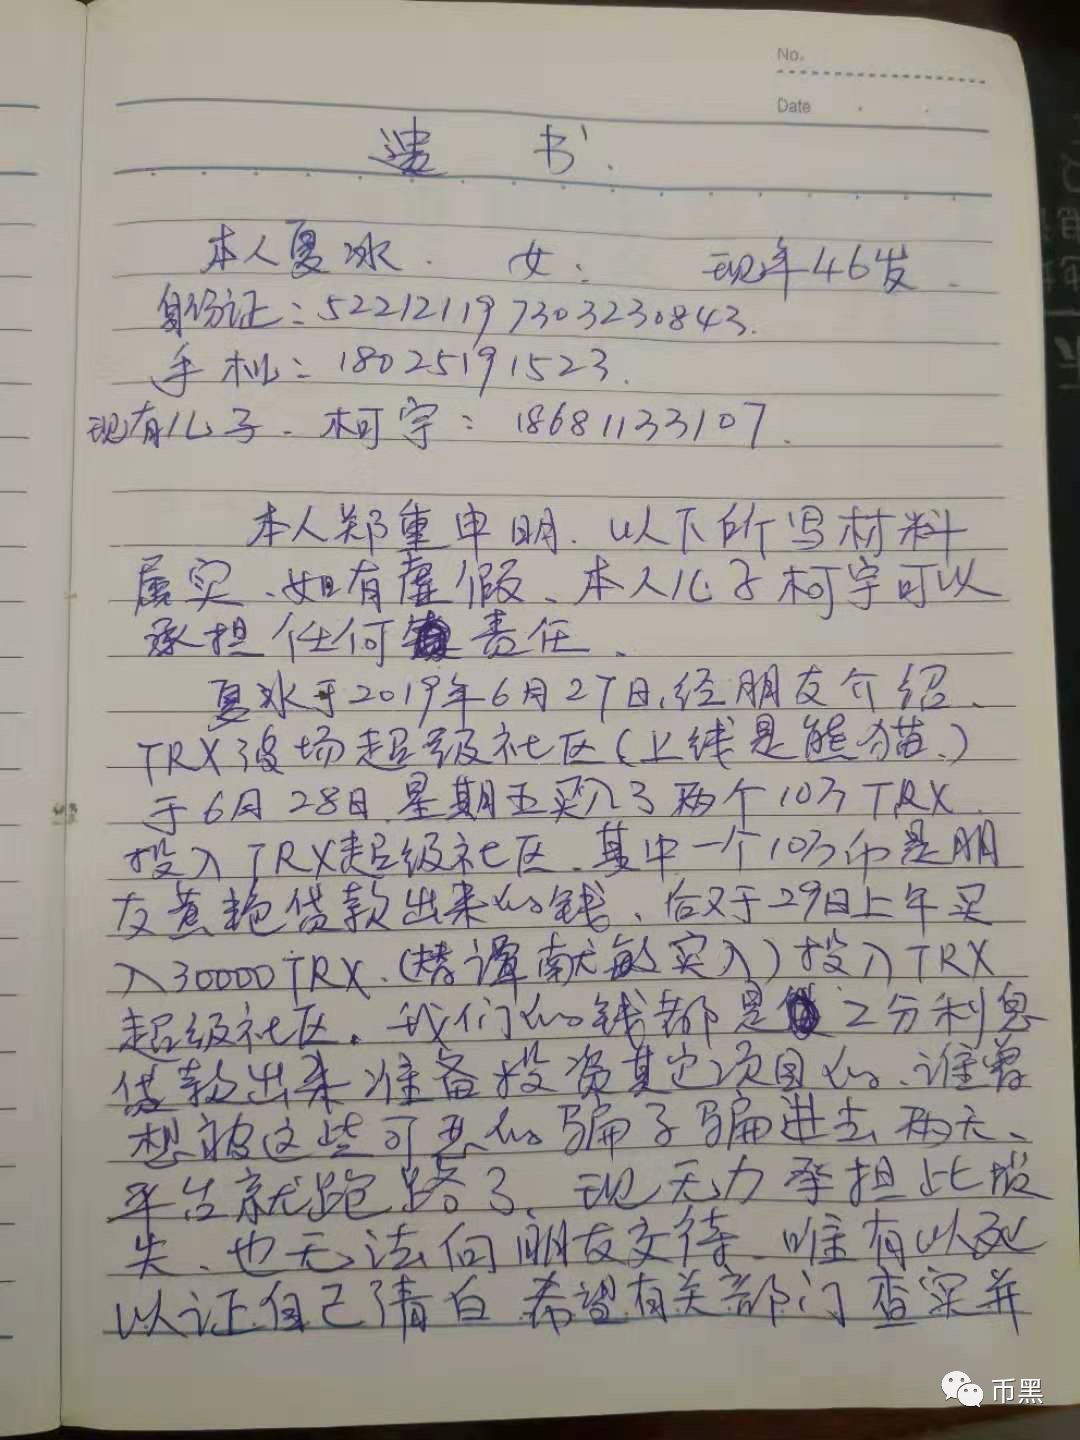 No.
Date
遗 书.
本人夏冰. 女: 现年46岁.
身份证:522121197303230843.
手机:18025191523.
现有儿子.柯宇:18681133107.
本人郑重申明.以下所写材料
属实、如有虚假、本人儿子柯宇可以
承担任何责任、
夏冰于2019年6月27日,经朋友介绍、
TRX波场超级社区(上线是熊猫、)
于6月28日.星期五买入了两个10万TRX.
投入TRX超级社区.其中一个10万币是朋
友黄艳贷款出来的钱、后又于29日上午买
入30000TRX.(替谭献敏买入)投入TRX
超级社区。我们的钱都是2分利息
贷款出来准备投资其它项目的、谁曾
想被这些可恶的骗子骗进去两天、
平台就跑路了、现无力承担此损
失、也无法向朋友交待、唯有以死
以证自己清白.希望有关部门查实并
币黑